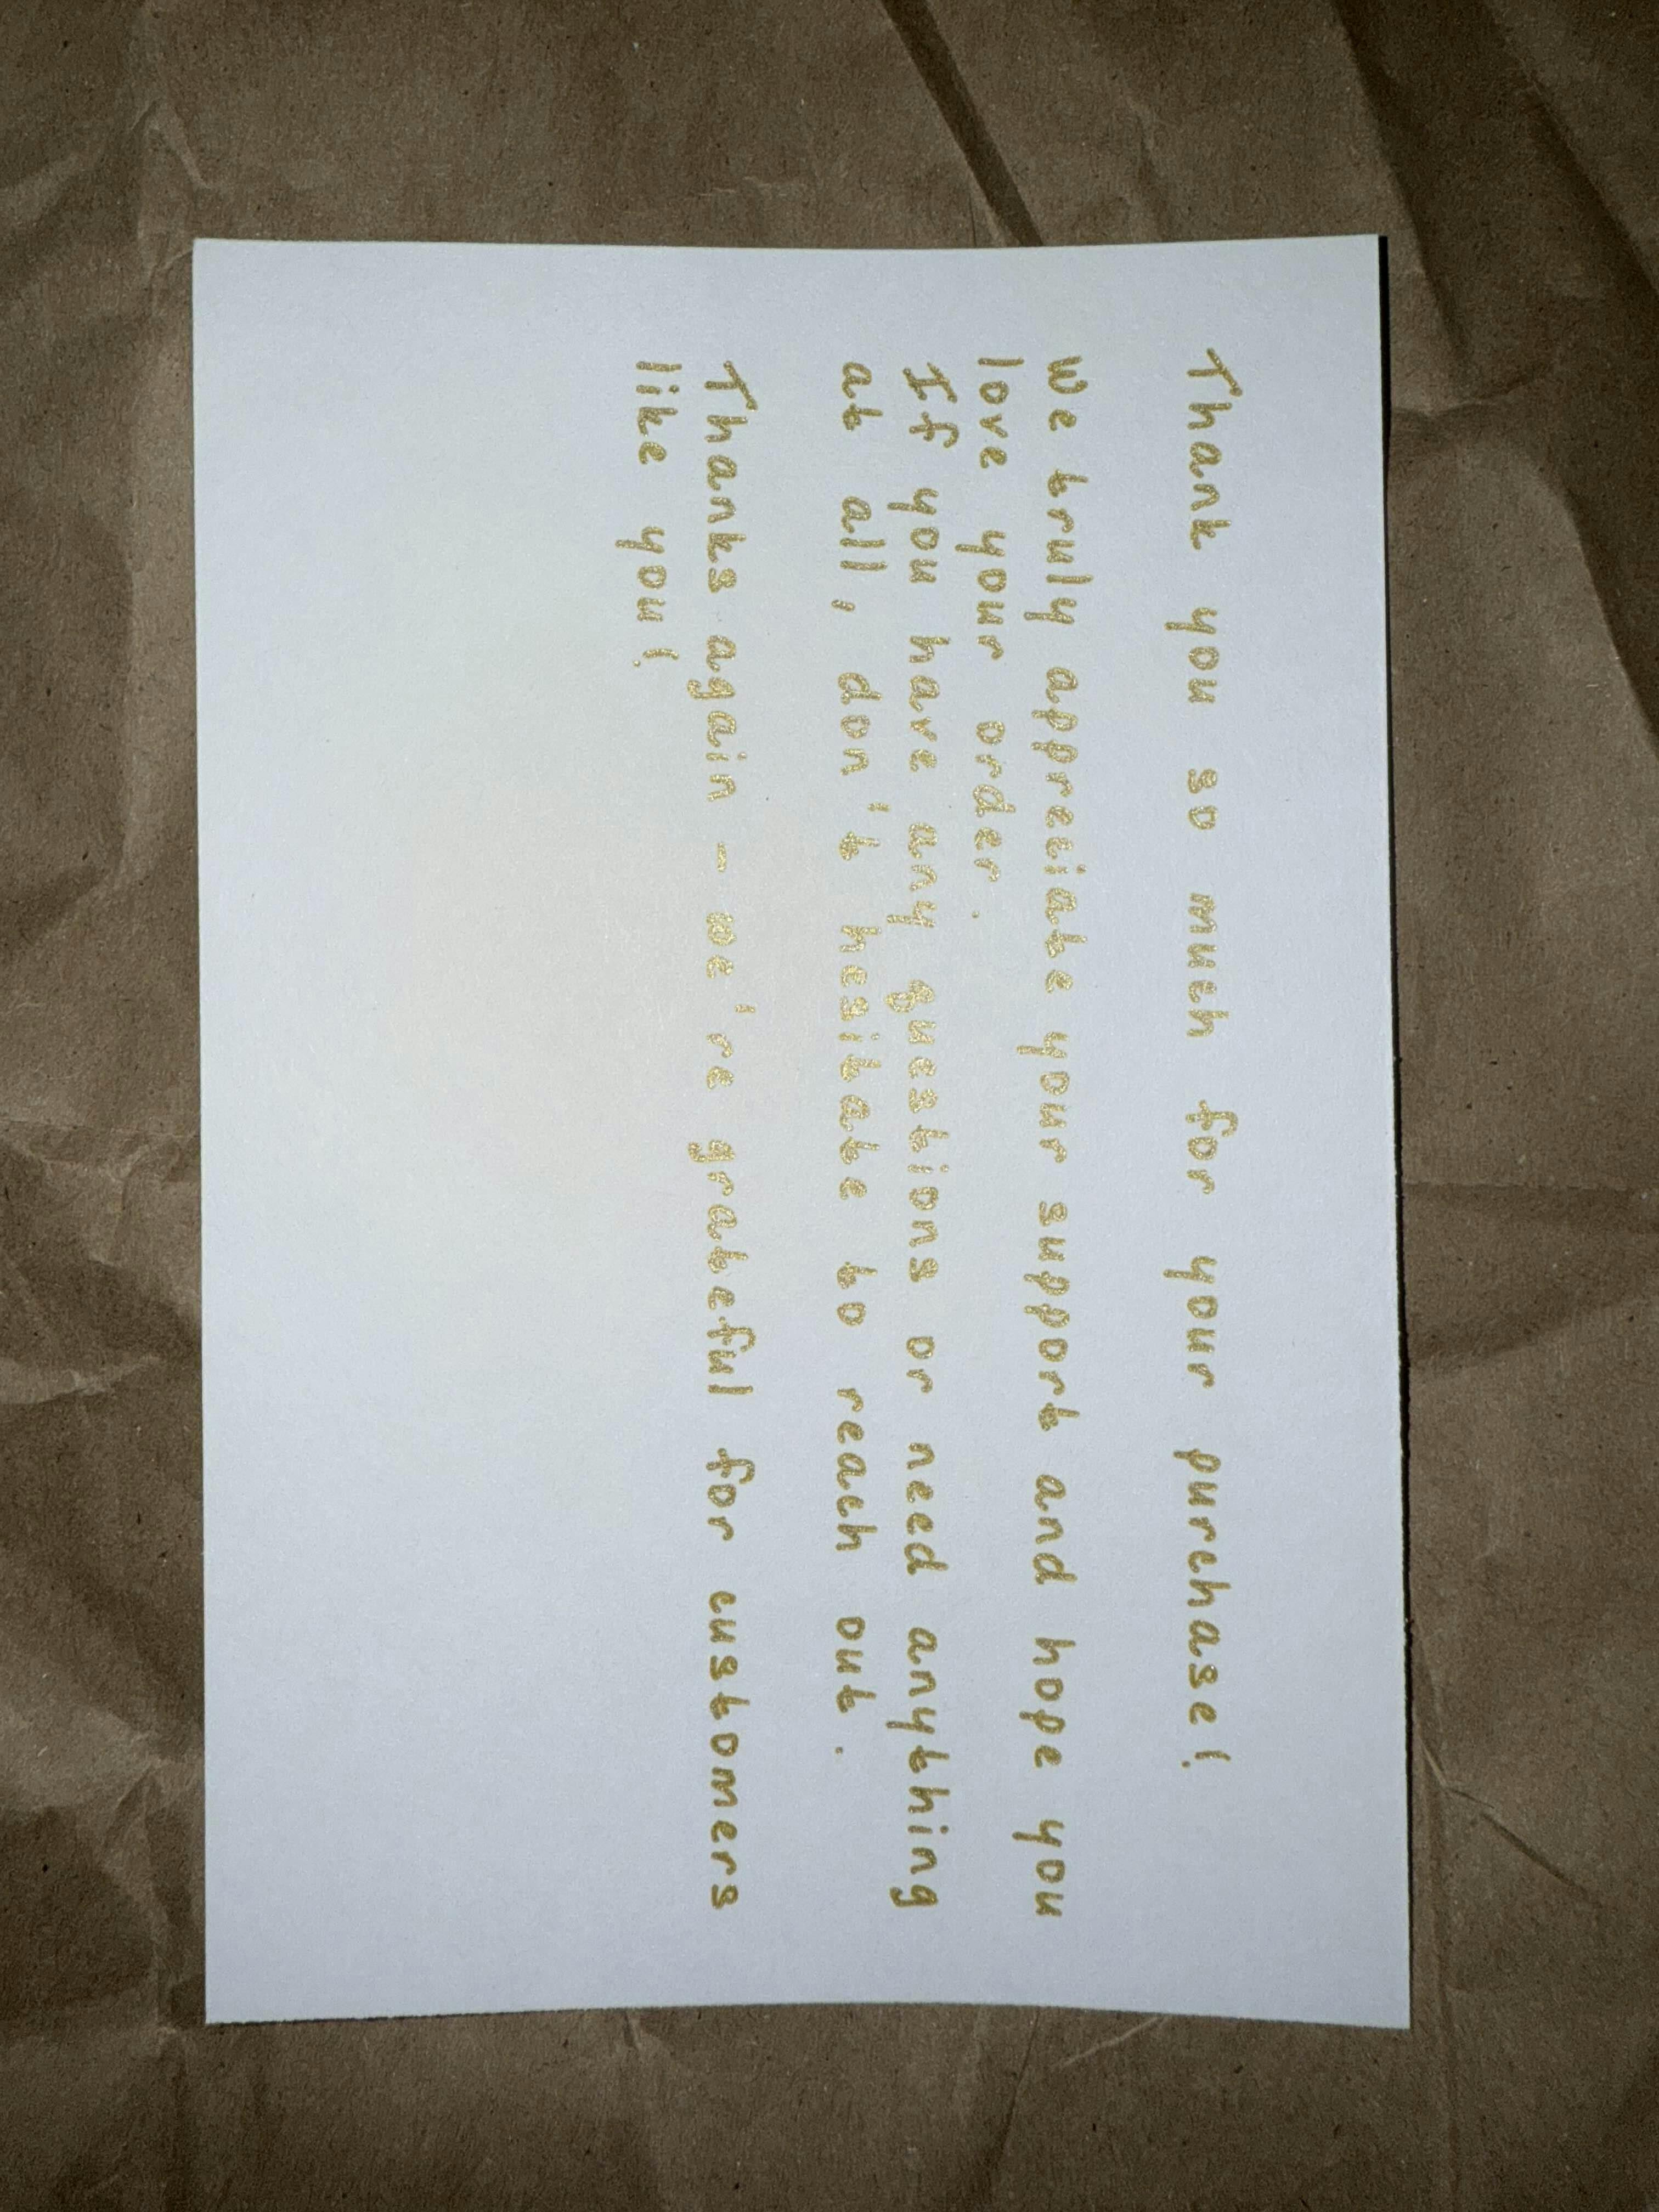 Thank you so much for your purchase!
We truly appreciate your support and hope you
love your order.
If you have any questions or need anything
at all, don't hesitate to reach out.
Thanks again - we're grateful for customers
like you!